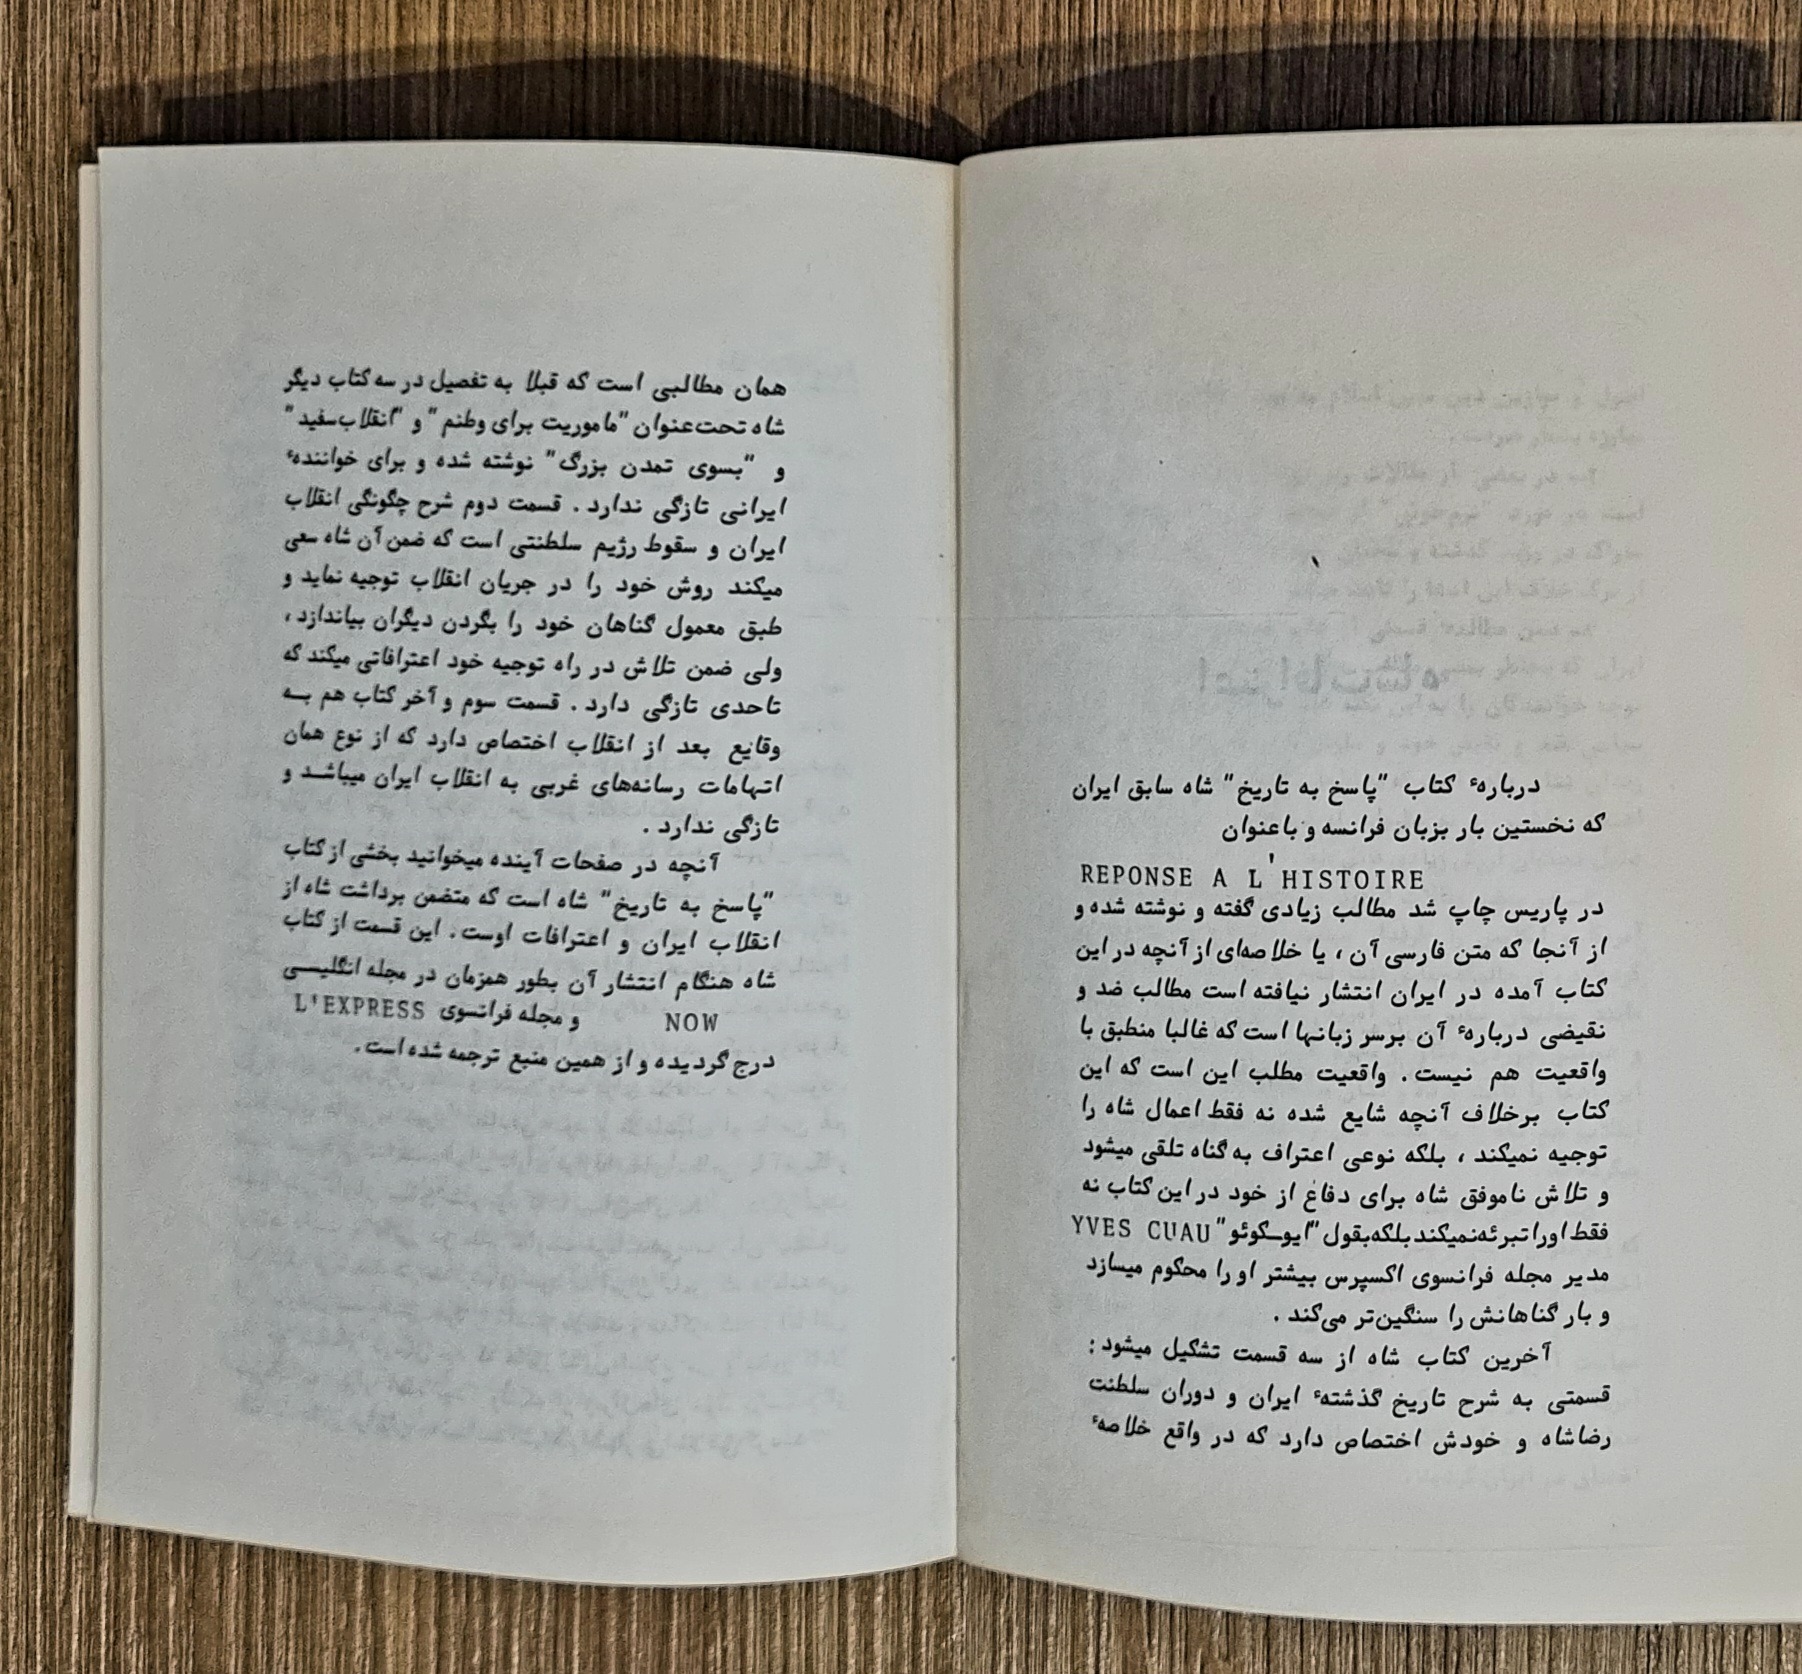 دربارهٔ کتاب "پاسخ به تاریخ" شاه سابق ایران
که نخستین بار بزبان فرانسه و باعنوان
REPONSE A L'HISTOIRE
در پاریس چاپ شد مطالب زیادی گفته و نوشته شده و
از آنجا که متن فارسی آن ، یا خلاصه‌ای از آنچه در این
کتاب آمده در ایران انتشار نیافته است مطالب ضد و
نقیضی دربارهٔ آن برسر زبانها است که غالبا منطبق با
واقعیت هم نیست . واقعیت مطلب این است که این
کتاب برخلاف آنچه شایع شده نه فقط اعمال شاه را
توجیه نمیکند ، بلکه نوعی اعتراف به گناه تلقی میشود
و تلاش ناموفق شاه برای دفاع از خود در این کتاب نه
فقط او را تبرئه نمیکند بلکه بقول "ایوـکوئو" YVES CUAU
مدیر مجله فرانسوی اکسپرس بیشتر او را محکوم میسازد
و بار گناهانش را سنگین‌تر می‌کند .
آخرین کتاب شاه از سه قسمت تشکیل میشود :
قسمتی به شرح تاریخ گذشتهٔ ایران و دوران سلطنت
رضاشاه و خودش اختصاص دارد که در واقع خلاصهٔ
همان مطالبی است که قبلا به تفصیل در سه کتاب دیگر
شاه تحت‌عنوان "ماموریت برای وطنم" و "انقلاب‌سفید"
و "بسوی تمدن بزرگ" نوشته شده و برای خوانندهٔ
ایرانی تازگی ندارد . قسمت دوم شرح چگونگی انقلاب
ایران و سقوط رژیم سلطنتی است که ضمن آن شاه سعی
میکند روش خود را در جریان انقلاب توجیه نماید و
طبق معمول گناهان خود را بگردن دیگران بیاندازد ،
ولی ضمن تلاش در راه توجیه خود اعترافاتی میکند که
تاحدی تازگی دارد . قسمت سوم و آخر کتاب هم بـه
وقایع بعد از انقلاب اختصاص دارد که از نوع همان
اتهامات رسانه‌های غربی به انقلاب ایران میباشـد و
تازگی ندارد .
آنچه در صفحات آینده میخوانید بخشی از کتاب
"پاسخ به تاریخ" شاه است که متضمن برداشت شاه از
انقلاب ایران و اعترافات اوست . این قسمت از کتاب
شاه هنگام انتشار آن بطور همزمان در مجله انگلیسـی
NOW و مجله فرانسوی L'EXPRESS
درج گردیده و از همین منبع ترجمه شده است.